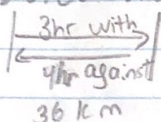 3hr with
4hr against
36 km